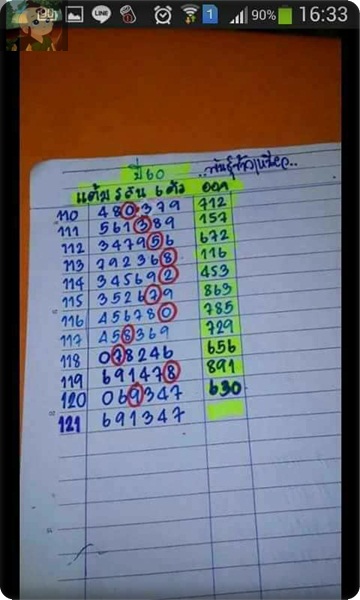 90% 16:33
ปี 60
แต้ม รวน 6 ตัว ออก
110 480379 712
111 561389 157
112 347956 672
113 792368 116
114 345692 453
115 352679 863
116 456780 785
117 458369 729
118 078246 656
119 691478 891
120 069347 630
121 691347